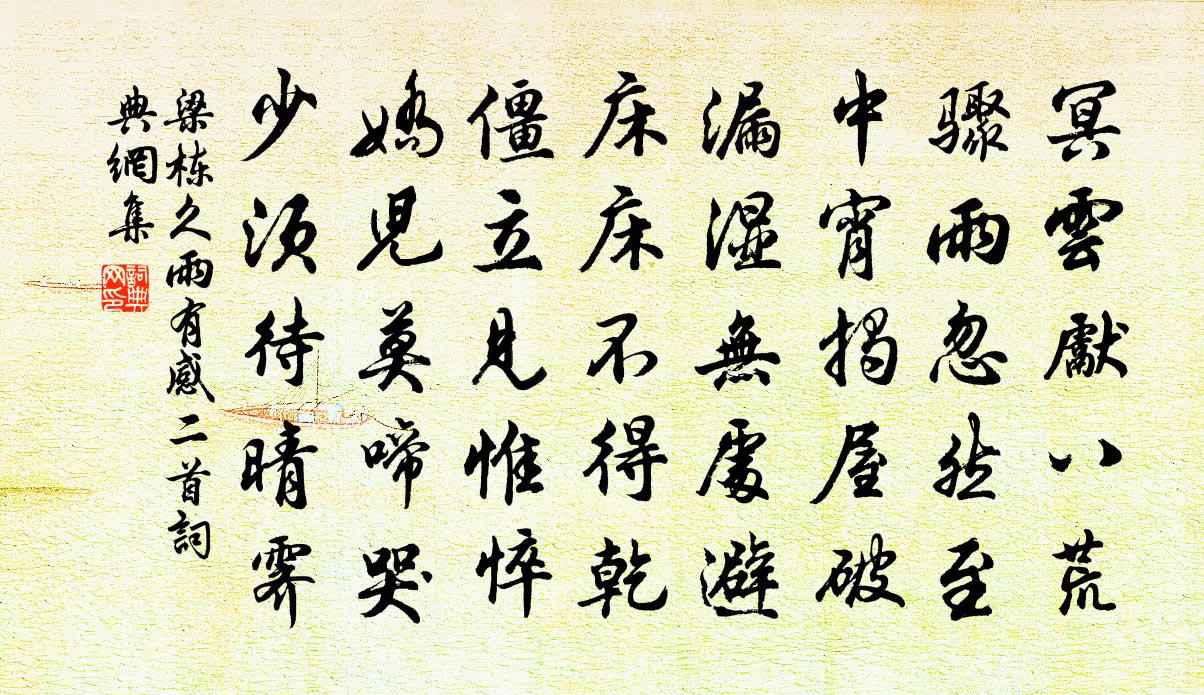 冥雲獻八荒
驟雨忽然至
中宵揭屋破
漏湿無處避
床床不得乾
僵立見惟悴
嬌児莫啼哭
少須待晴霽
梁栋久雨有感二首詞
典網集
詞典
网印